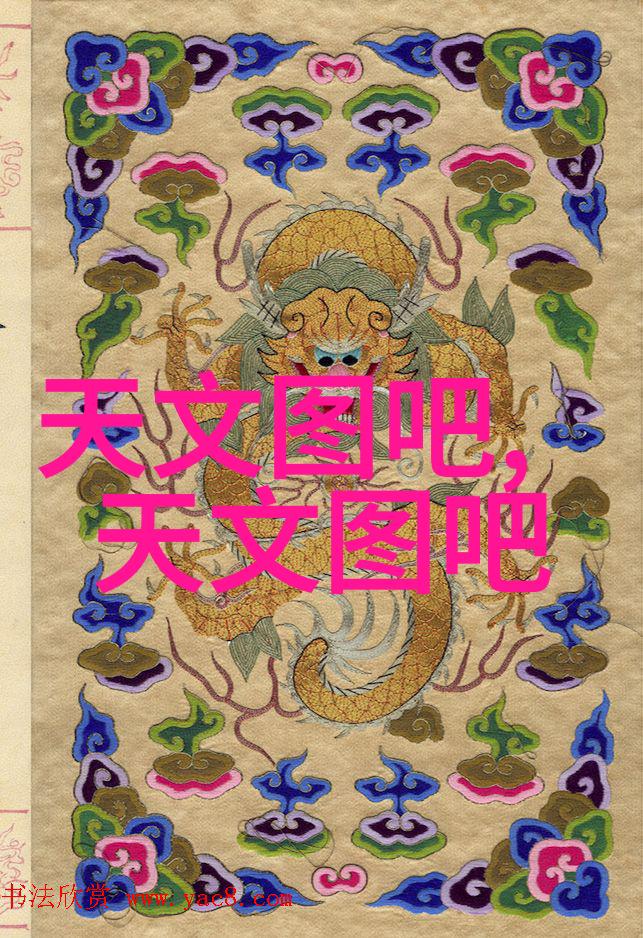 天文图吧,
天文图吧
书法欣赏 www.yac8.com